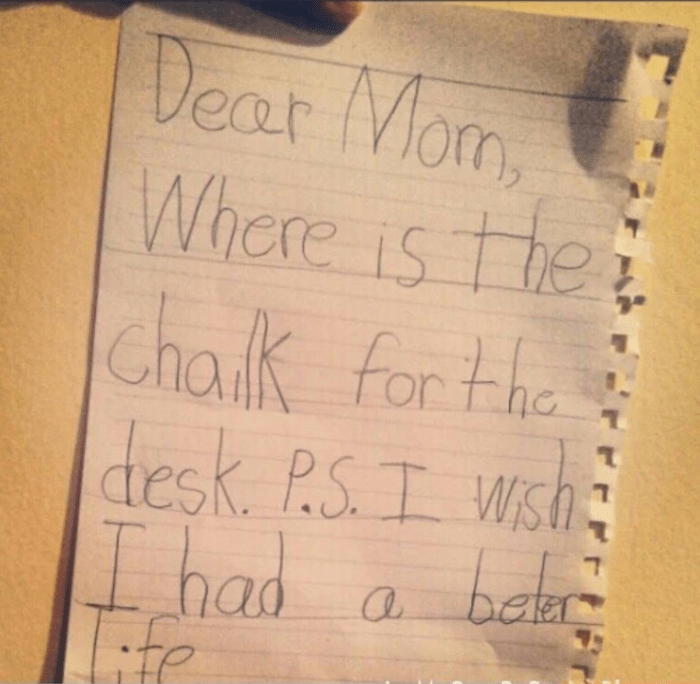 Dear Mom,
Where is the
chalk for the
desk. P.S. I wish
I had a beter
life